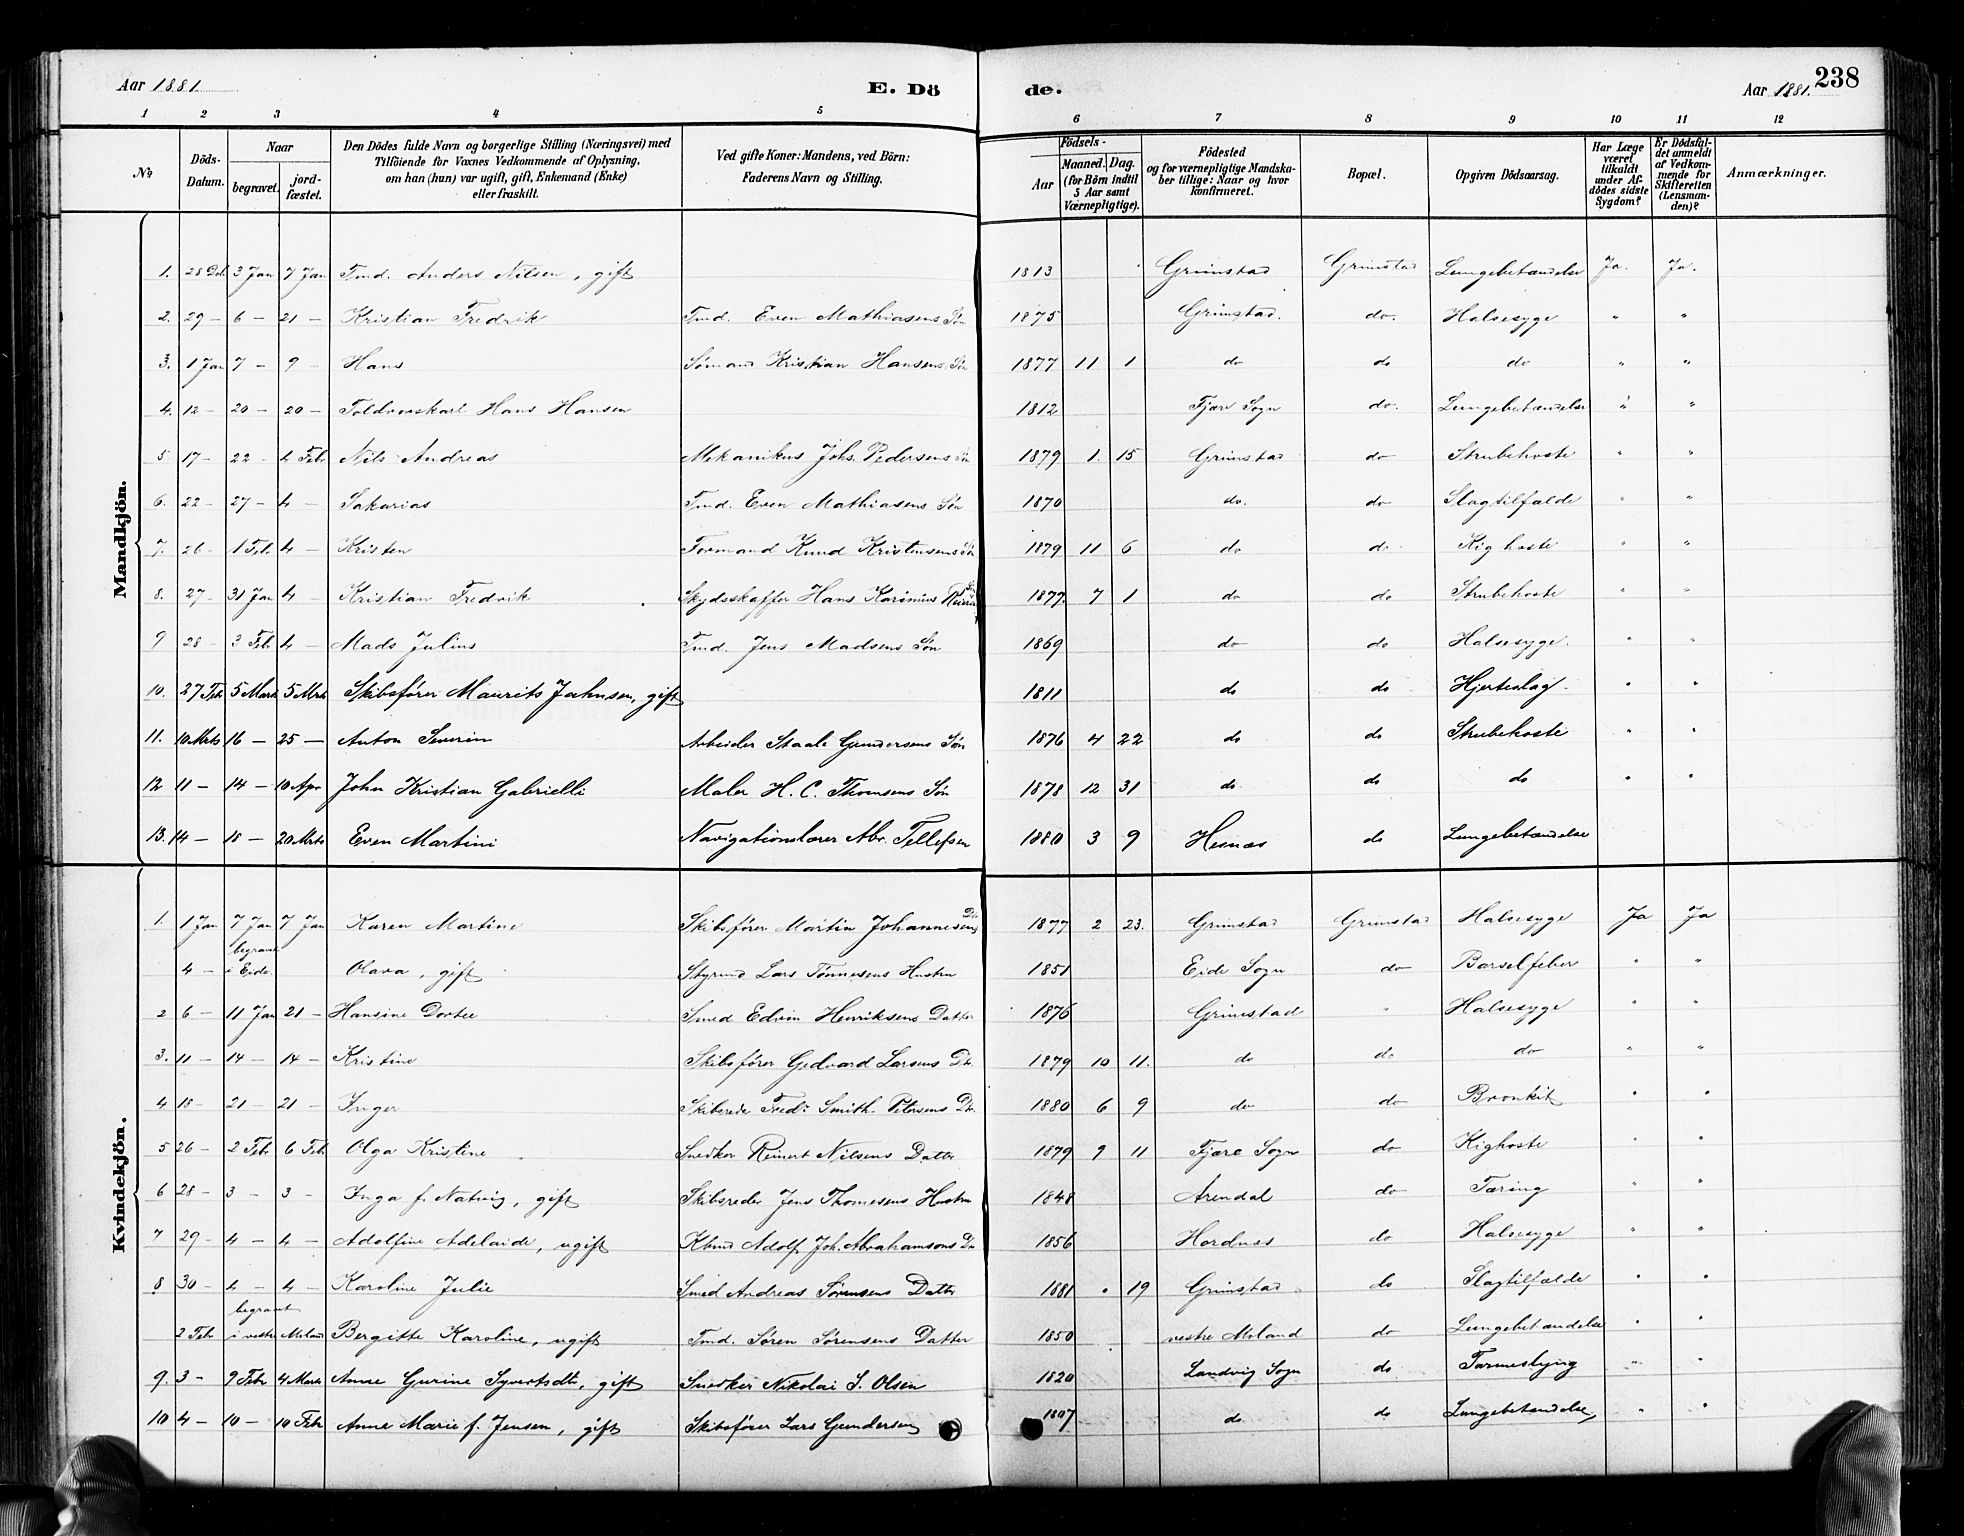 Aar 1881. E. Dö de. Aar 1881. 238
1 2 3 4 5 6 7 8 9 10 11 12
No Döds-Datum. Naar begravet. jordfæstet. Den Dödes fulde Navn og borgerlige Stilling (Næringsvei) med Tilföiende for Voxnes Vedkommende af Oplysning, om han (hun) var ugift, gift, Enkemand (Enke) eller fraskilt. Ved gifte Koner: Mandens, ved Börn: Faderens Navn og Stilling. Födsels- Aar Maaned. Dag. (for Börn indtil 5 Aar samt Værnepligtige). Födested og for værnepligtige Mandskaber tillige: Naar og hvor konfirmeret. Bopæl. Opgiven Dödsaarsag. Har Læge været tilkaldt under Afdödes sidste Sygdom? Er Dödsfaldet anmeldt af Vedkommende for Skifteretten (Lensmanden)? Anmærkninger.
Mandkjön.
1. 28 Dec 3 Jan 7 Jan Tmd. Anders Nilsen, gift 1813 Grimstad Grimstad Lungebetændelse Ja. Ja.
2. 29 – 6 – 21 – Kristian Fredrik Tmd. Even Mathiasens Søn 1875 Grimstad. do. Halsesyge " "
3. 1 Jan 7 – 9 – Hans Sømand Kristian Hansens Søn 1877 11 1 do do do " "
4. 12 – 20 – 20 – Hans Hansen 1812 Fjære Sogn do. Lungebetændelse " "
5. 17 – 22 – 4 Feb Nils Andreas Mekanikus Johs. Pedersens Søn 1879 1. 15 Grimstad do Strubehoste " "
6. 22 – 27 – 4 – Sakarias Tmd. Even Mathiasens Søn 1870 do. do Slagtilfælde " "
7. 26 – 1 Feb 4 – Kristen Formand Knud Kristensens Søn 1879 11 6 do do Kighoste " "
8. 27 – 31 Jan 4 – Kristian Fredrik Skydsskaffer Hans Karinius 1877. 7 1 do do Strubehoste " "
9 28 – 3 Feb 4 – Mads Julius Tmd. Jens Madsens Søn 1869 do do Halsesyge. " "
10. 27 Feb 5 Marts 5 Mrts Skibsfører Maurits Jahnsen, gift 1811 do do Hjerteslag " "
11. 10 Mrts 16 – 25 – Anton Severin Arbeider Staale Gundersens Søn 1876 4 22 do do Strubehoste " "
12 11 – 14 – 10 Apr John Kristian Gabrielli Maler H. C. Thorensens Søn 1878 12 31 do do do " "
13. 14 – 18 – 20 Mrts Even Martini Navigationslærer Abr. Tellefsen 1880 3 9 Hesnæs do Lungebetændelse
Kvindekjön.
1. 1 Jan 7 Jan 7 Jan Karen Martine Skibsfører Martin Johannesens Dtr 1877 2 23. Grimstad Grimstad Halsesyge Ja Ja
4 – begravet i Eide. Olava, gift Styrmd Lars Tønnesens Hustru 1851 Eide Sogn do Barselfeber " "
2 6 – 11 Jan 21 – Hansine Dortee Smed Edvin Henriksens Datter 1876 Grimstad " Halsesyge " "
3. 11 – 14 – 14 – Kristine Skibsfører Gedvard Larsens Dtr 1879 10 11. do do do " "
4 18 – 21 – 21 – Inger Skibsrede Fredr. Smith Petersens Dtr 1880 6 9 do do Bronkit " "
5 26 – 2 Feb 6 Feb Olga Kristine Snedker Reinert Nilsens Datter 1879 9 11 Fjære Sogn do Kighoste " "
6 28 – 3 – 3 – Inga f. Natvig, gift Skibsreder Jens Thomesens Hustru 1848 Arendal do Tæring " "
7 29 – 4 – 4 – Adolfine Adelaide, ugift Kbmd Adolf Joh. Abrahamsons Dtr 1856 Hordnæs do Halsesyge " "
8 30 – 4 – 4 – Karoline Julie Smed Andreas Sørensens Datter 1881 " 19 Grimstad do Slagtilfælde " "
2 Febr begravet i vestre Moland Bergitte Karoline, ugift Tmd. Søren Sørensens Datter 1850 vestre Moland do Lungebetændelse " "
9. 3 – 9 Febr 4 Marts Anne Gurine Syvertsdtr, gift Snedker Nikolai S. Olsen 1820 Landvig Sogn do Tarmeslyng " "
10 4 – 10 – 10 Febr Anne Marie f. Jensen, gift Skibsfører Lars Gundersen 1807 do do Lungebetændelse " "